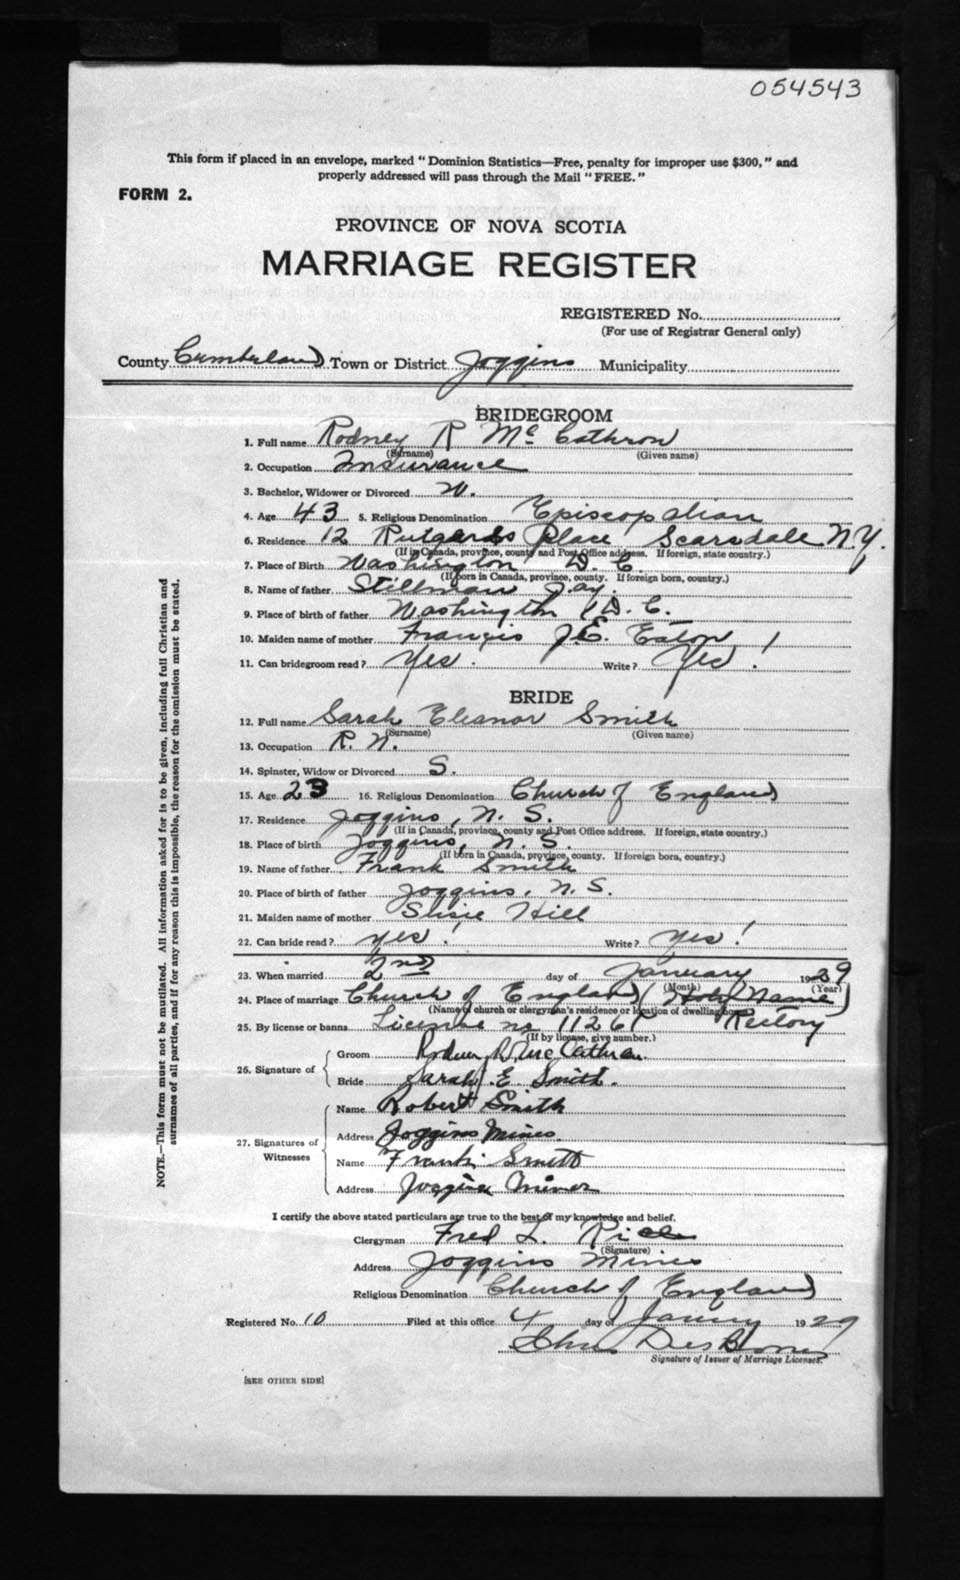 054543
This form if placed in an envelope, marked " Dominion Statistics—Free, penalty for improper use $300," and
properly addressed will pass through the Mail " FREE. "
FORM 2.
PROVINCE OF NOVA SCOTIA
MARRIAGE REGISTER
REGISTERED No.
(For use of Registrar General only)
County Cumberland Town or District Joggins Municipality
BRIDEGROOM
1. Full name Rodney R Mc Cathron
(Surname) (Given name)
2. Occupation Insurance
3. Bachelor, Widower or Divorced W.
4. Age 43 5. Religious Denomination Episcopalian
6. Residence 12 Rutgards Place Scarsdale N.Y.
(If in Canada, province, county and Post Office address. If foreign, state country.)
7. Place of Birth Washington D. C.
(If born in Canada, province, county. If foreign born, country.)
8. Name of father Stillman Jay.
9. Place of birth of father Washington, D. C.
10. Maiden name of mother Francis J.E. Eaton
11. Can bridegroom read? Yes. Write? Yes!
BRIDE
12. Full name Sarah Eleanor Smith
(Surname) (Given name)
13. Occupation R. N.
14. Spinster, Widow or Divorced S.
15. Age 23 16. Religious Denomination Church of England
17. Residence Joggins, N. S.
(If in Canada, province, county and Post Office address. If foreign, state country.)
18. Place of birth Joggins, N. S.
(If born in Canada, province, county. If foreign born, country.)
19. Name of father Frank Smith
20. Place of birth of father Joggins, N. S.
21. Maiden name of mother Hill
22. Can bride read? yes! Write? yes!
23. When married 2nd day of January 1929
(Month) (Year)
24. Place of marriage Church of England (Holy Name)
(Name of church or clergyman's residence or location of dwelling house) Rectory
25. By license or banns License no 11261
(If by license, give number.)
26. Signature of
Groom Rodney R. McCathran.
Bride Sarah E Smith.
27. Signatures of Witnesses
Name Robert Smith
Address Joggins Mines.
Name Frank Smith
Address Joggins Mines
I certify the above stated particulars are true to the best of my knowledge and belief.
Clergyman Fred L. Rice
(Signature)
Address Joggins Mines
Religious Denomination Church of England
Registered No. 10 Filed at this office 4 day of January 1929
DesBarres
Signature of Issuer of Marriage Licenses.
[SEE OTHER SIDE]
NOTE.—This form must not be mutilated. All information asked for is to be given, including full Christian and
surnames of all parties, and if for any reason this is impossible, the reason for the omission must be stated.